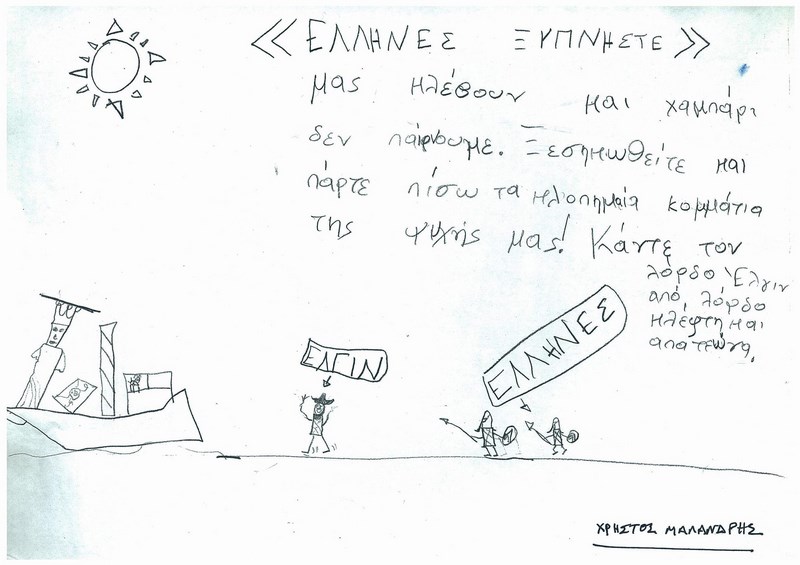 << ΕΛΛΗΝΕΣ ΞΥΠΝΗΣΤΕ >>
μας κλέβουν και χαμπάρι
δεν παίρνουμε. Ξεσηκωθείτε και
πάρτε πίσω τα κλοπημαία κομμάτια
της ψυχής μας! Κάντε τον
λόρδο Έλγιν
από, λόρδο
κλέφτη και
απατεώνα.
ΕΛΓΙΝ
ΕΛΛΗΝΕΣ
ΧΡΗΣΤΟΣ ΜΑΛΑΝΔΡΗΣ